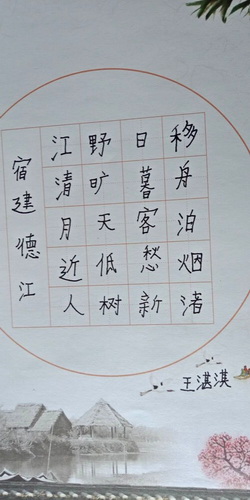 移舟泊烟渚
日暮客愁新
野旷天低树
江清月近人
宿建德江
王湛淇